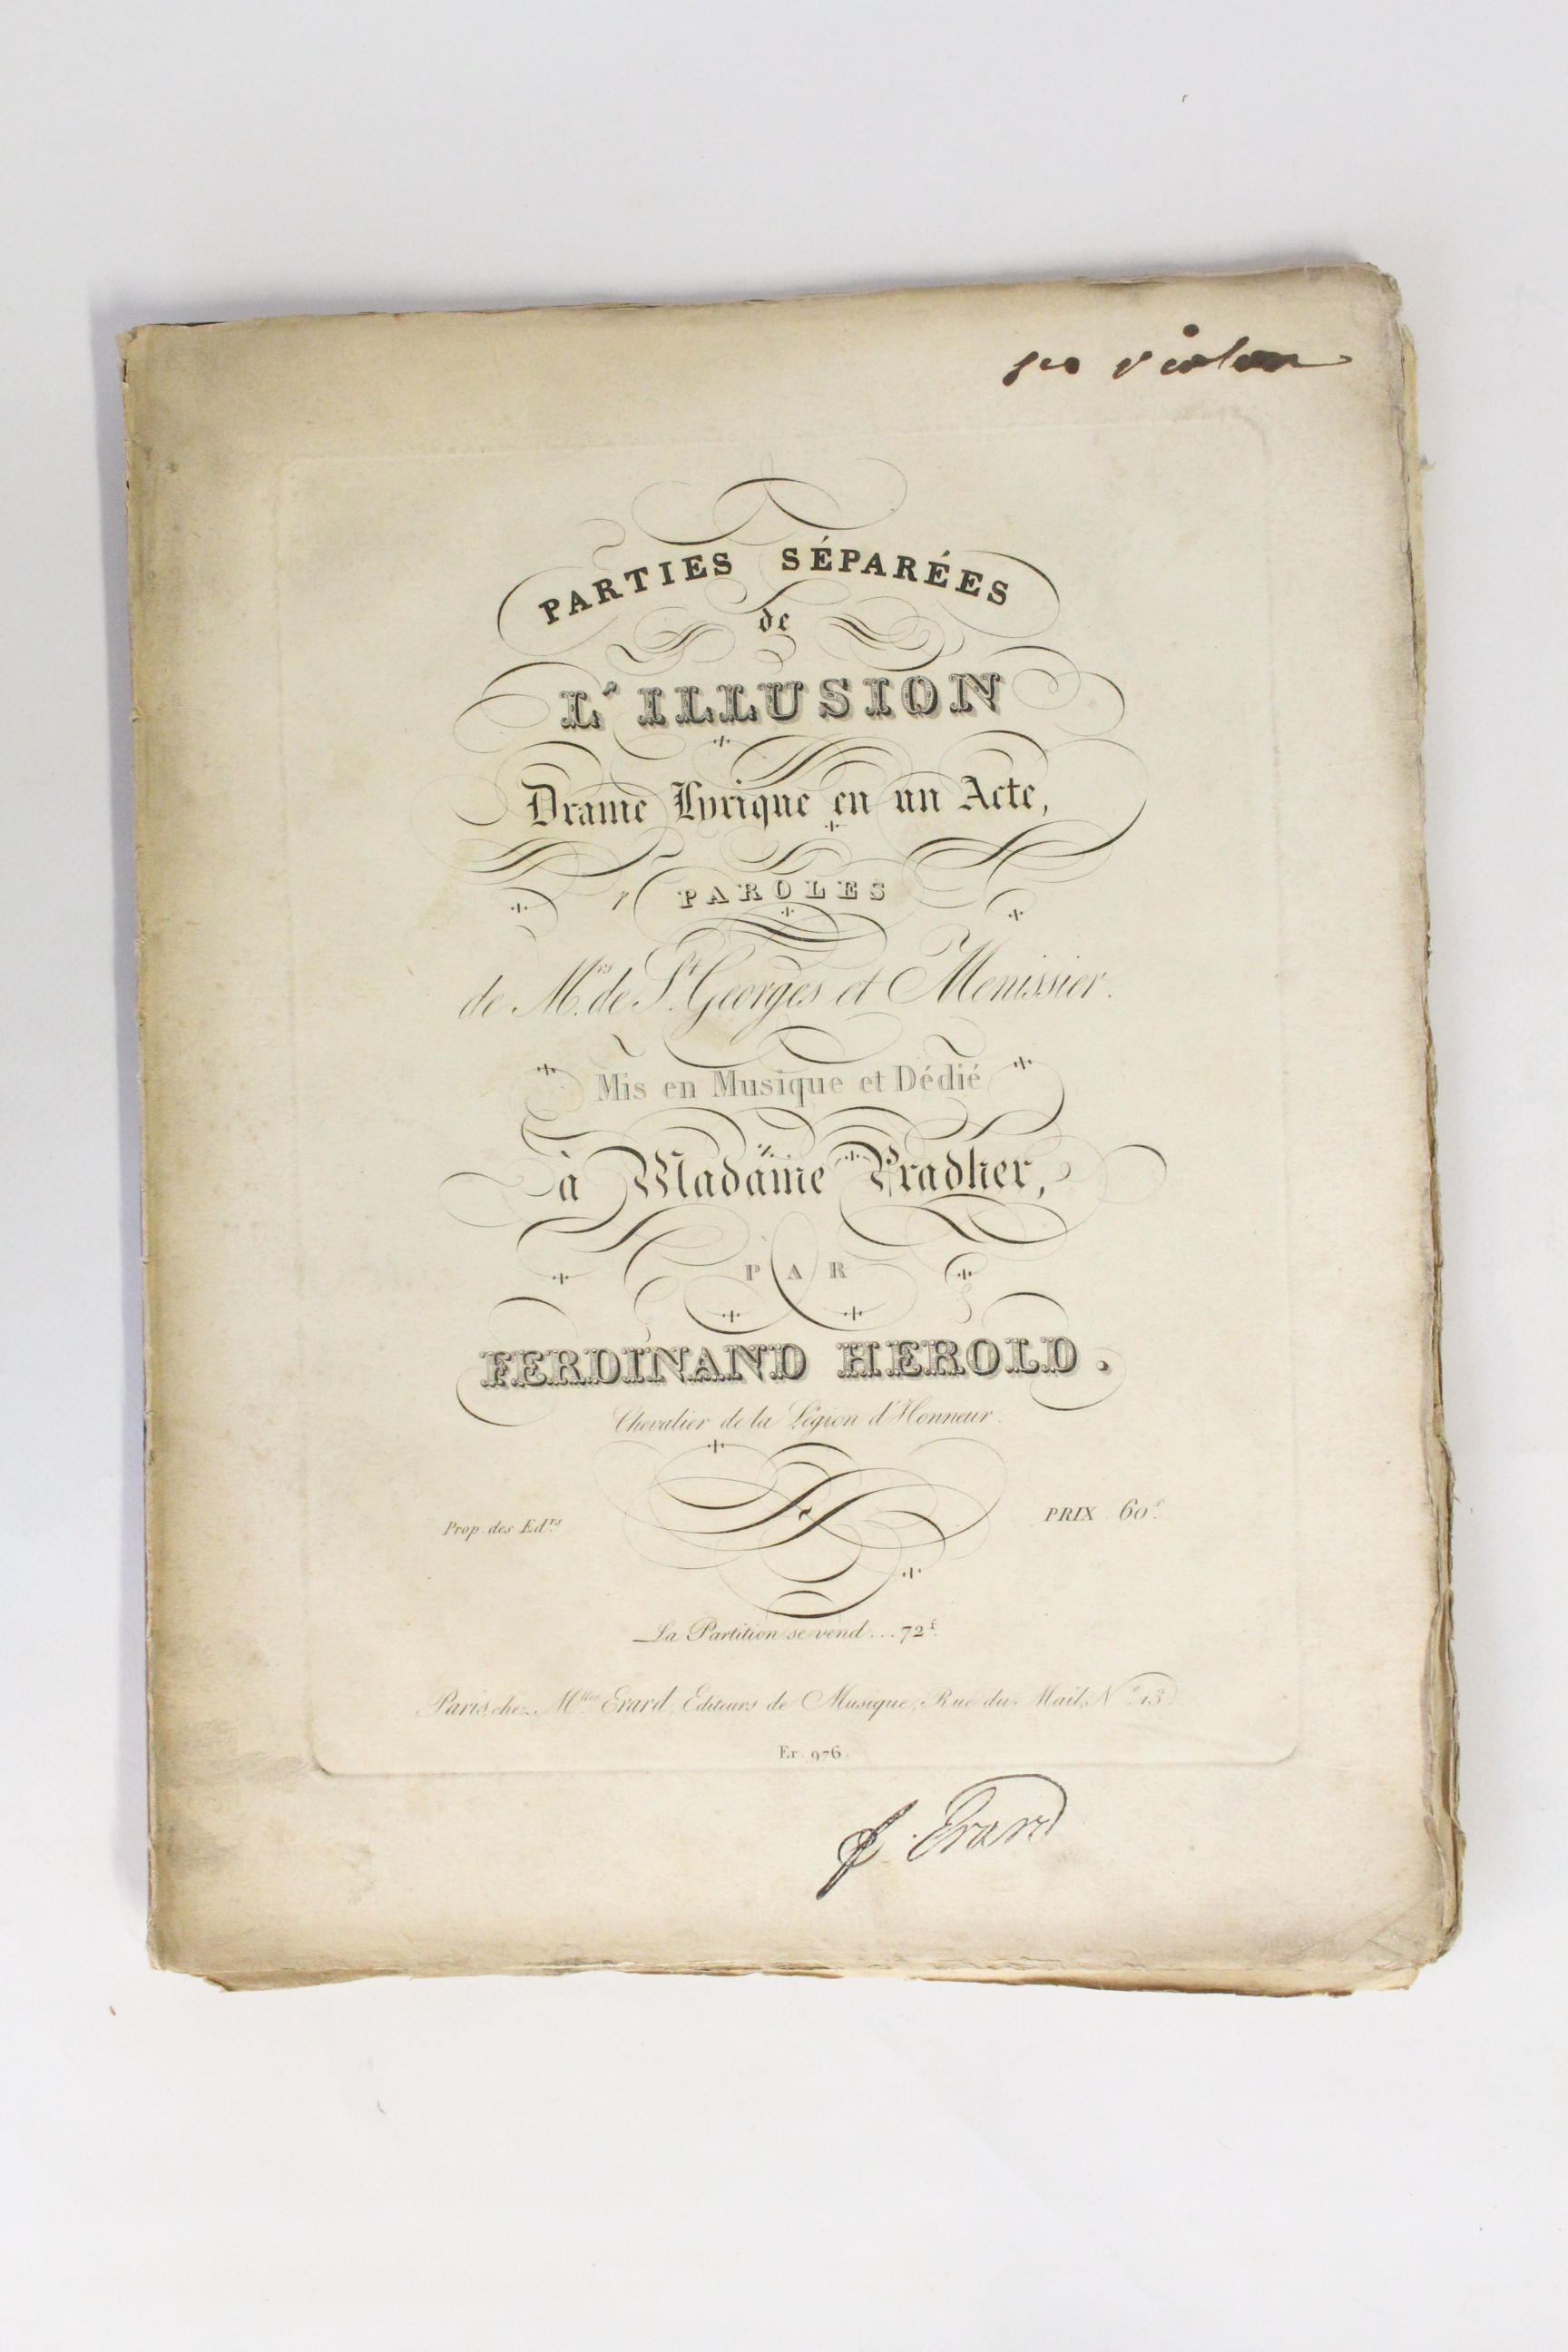 1er violon
PARTIES SÉPARÉES
de
L'ILLUSION
Drame Lyrique en un Acte,
PAROLES
de Mrs. de St. Georges et Menissier.
Mis en Musique et Dédié
à Madame Pradher,
PAR
FERDINAND HEROLD.
Chevalier de la Légion d'Honneur.
Prop. des Edrs.
PRIX 60f.
La Partition se vend...72f.
Paris, chez Mlles Erard, Editeurs de Musique, Rue du Mail, No. 13.
Er. 976.
f. Erard